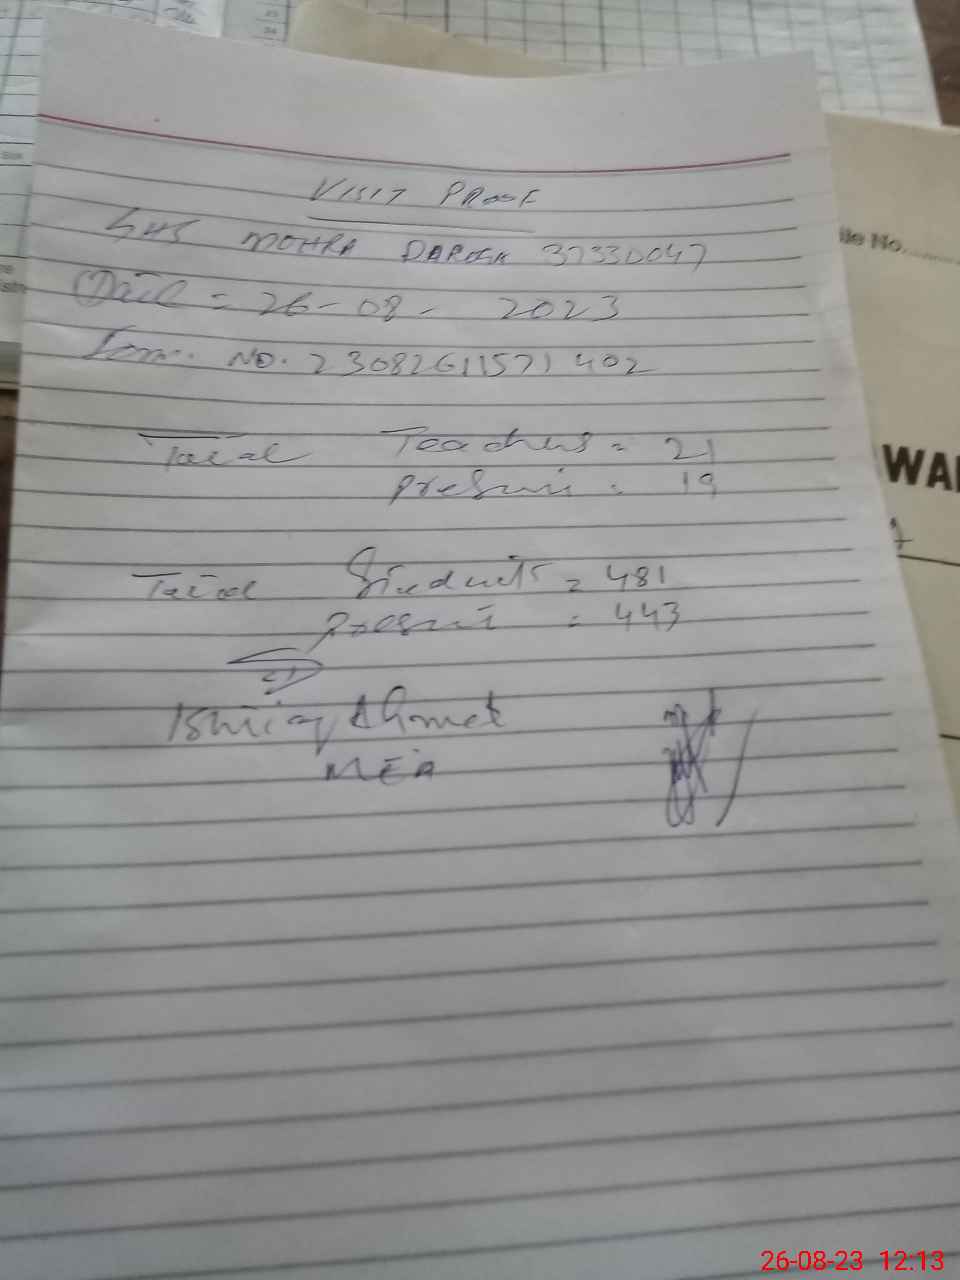 VISIT PROOF
GHS MOHRA DAROGA 37330047
Date = 26-08-2023
Form. NO. 23082611571402
Total Teachers = 21
Present = 19
Total Students = 481
Present = 443
Ishtiaq Ahmed
MEA
ile No.
WA
26-08-23 12:13